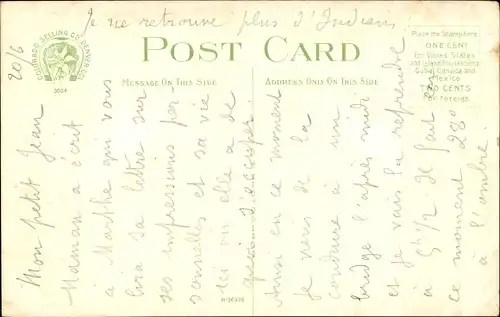 Je ne retrouve plus d'Indiens
COLORADO SELLING CO. DENVER COLO.
3024
POST CARD
Place the Stamp here
ONE CENT
for United States
and Island Possessions
Cuba, Canada and
Mexico
TWO CENTS
For Foreign
MESSAGE ON THIS SIDE
ADDRESS ONLY ON THIS SIDE
20/6
Mon petit Jean
Maman a écrit
à Marthe qui vous
lira sa lettre sur
ses impressions per-
sonnelles et sa vie
ici où elle a de
quoi s'occuper.
Ainsi en ce moment
je viens de la
conduire à un
bridge l'après midi
et je vais la reprendre
à 5h 1/2. Il fait en
ce moment 28°
à l'ombre.